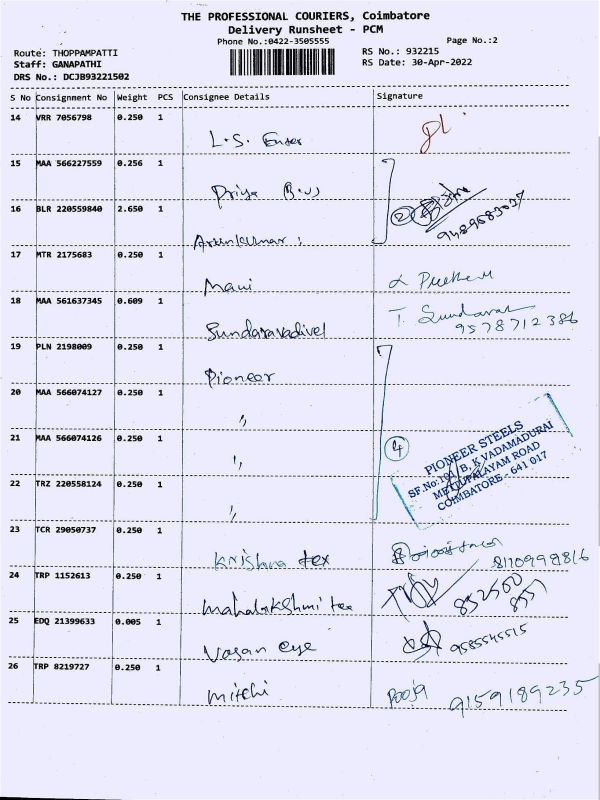 THE PROFESSIONAL COURIERS, Coimbatore
Delivery Runsheet - PCM
Phone No.:0422-3505555 Page No.:2
Route: THOPPAMPATTI RS No.: 932215
Staff: GANAPATHI RS Date: 30-Apr-2022
DRS No.: DCJB93221502
S No Consignment No Weight PCS Consignee Details Signature
14 VRR 7056798 0.250 1
L.S. Enter
15 MAA 566227559 0.256 1
Priya
16 BLR 220559840 2.650 1
Arunkumar
17 MTR 2175683 0.250 1
Mani
18 MAA 561637345 0.609 1
Sundaravadivel T. Sundaravel
9578712386
19 PLN 2198009 0.250 1
Pioneer
20 MAA 566074127 0.250 1
"
21 MAA 566074126 0.250 1
" 4
22 TRZ 220558124 0.250 1
"
PIONEER STEELS
SF.No:101/B, K.VADAMADURAI
METTUPALAYAM ROAD
COIMBATORE - 641 017
23 TCR 29050737 0.250 1
Krishna tex
24 TRP 1152613 0.250 1
mahalakshmi tex
25 EDQ 21399633 0.005 1
Vasan eye 9585545515
26 TRP 8219727 0.250 1
mitchi Pooja 9159189235